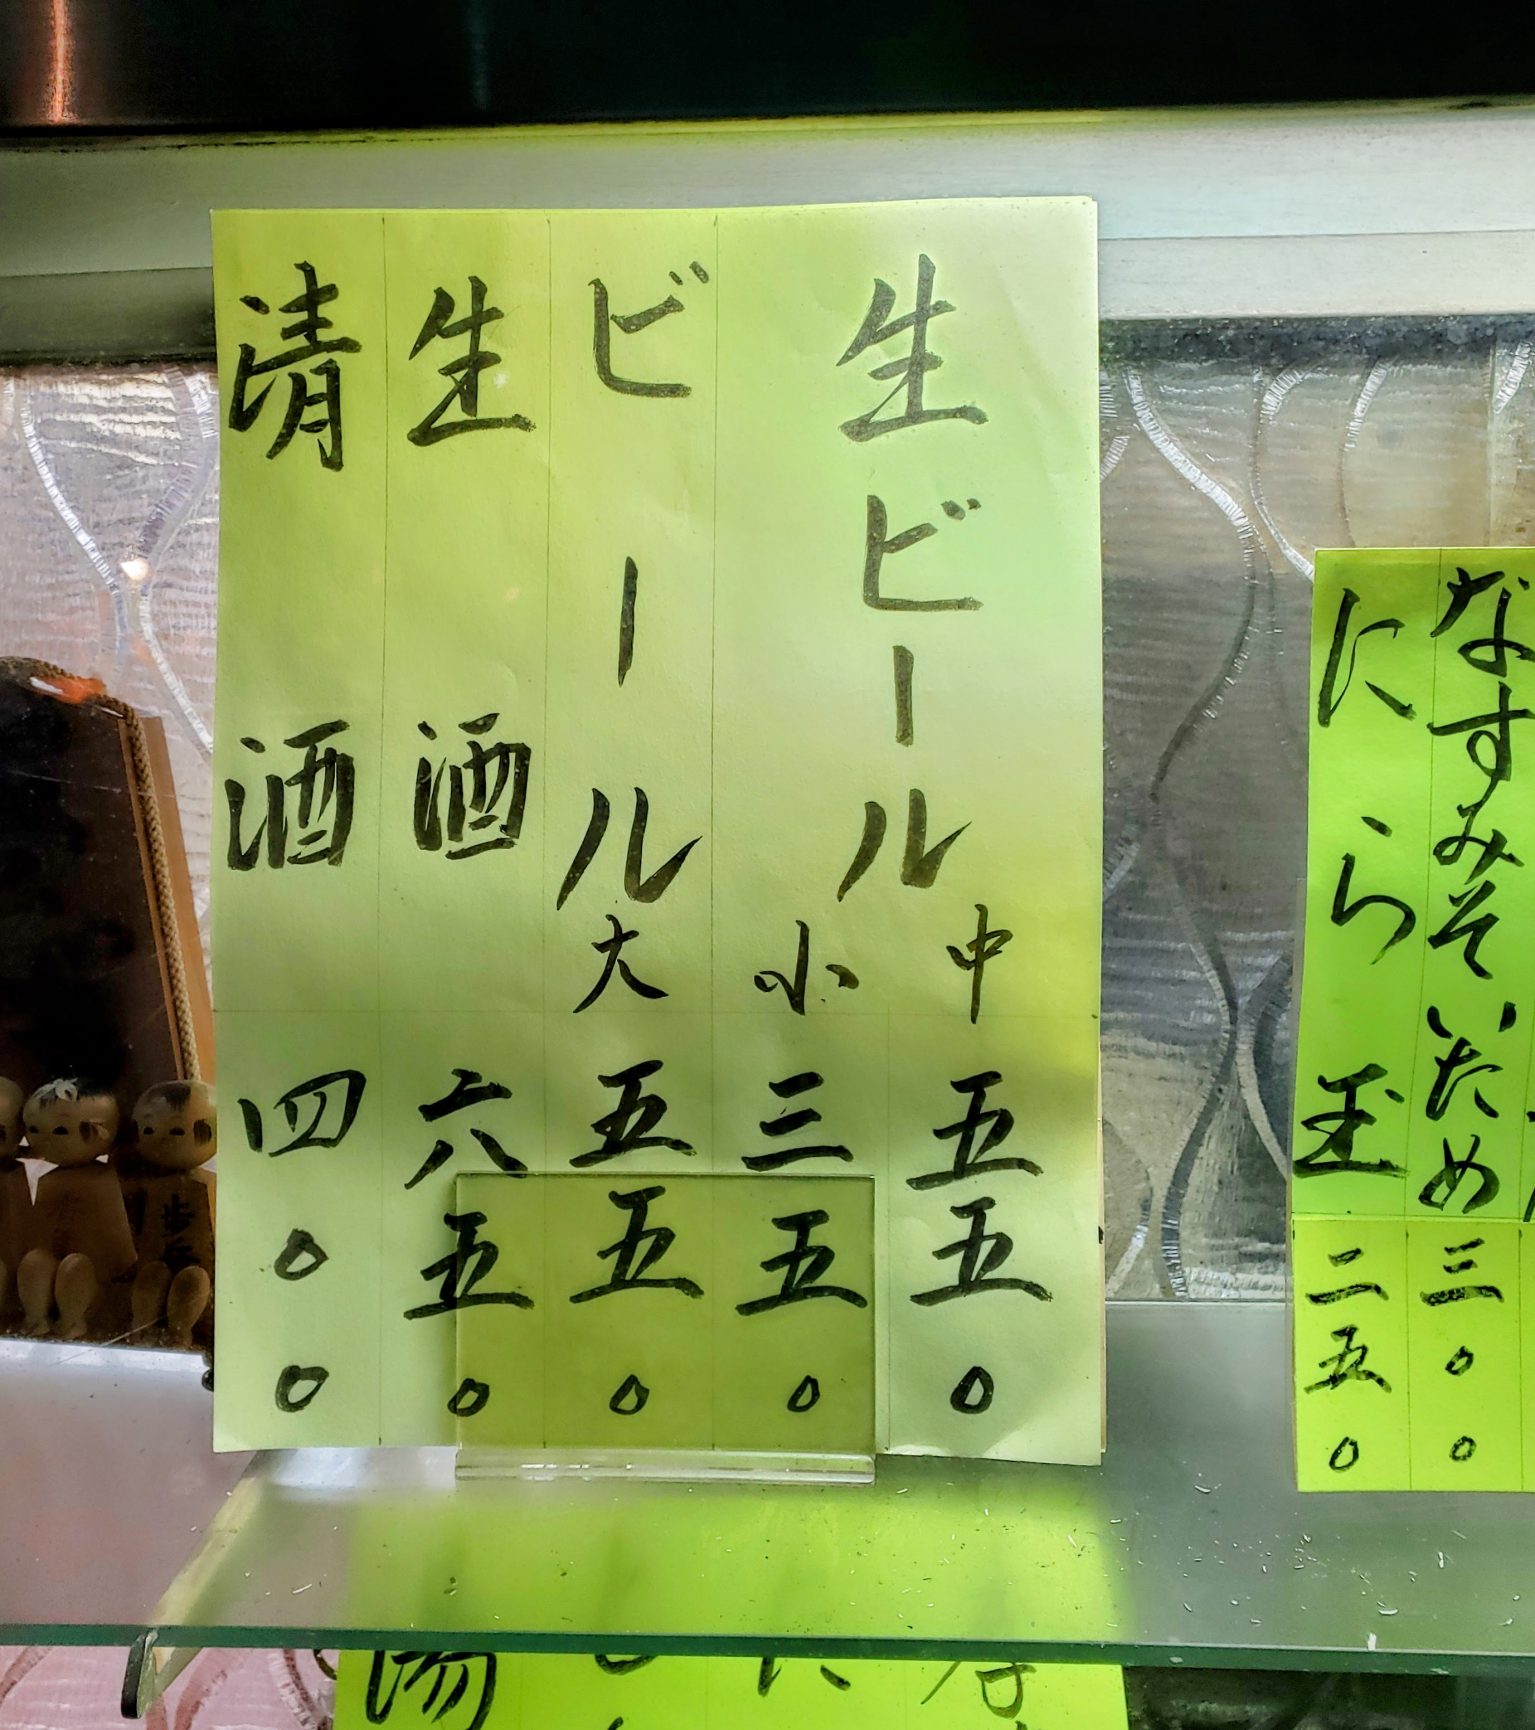 なすみそいため 三〇〇
にら玉 二五〇
生ビール 中 五五〇
小 三五〇
ビール 大 五五〇
生酒 六五〇
清酒 四〇〇
歩兵